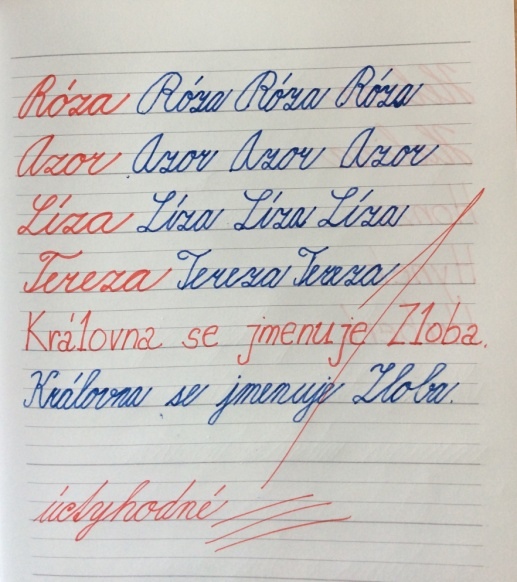 Róza Róza Róza Róza
Azor Azor Azor Azor
Líza Líza Líza Líza
Tereza Tereza Tereza
Královna se jmenuje Zloba.
Královna se jmenuje Zloba.
úctyhodné